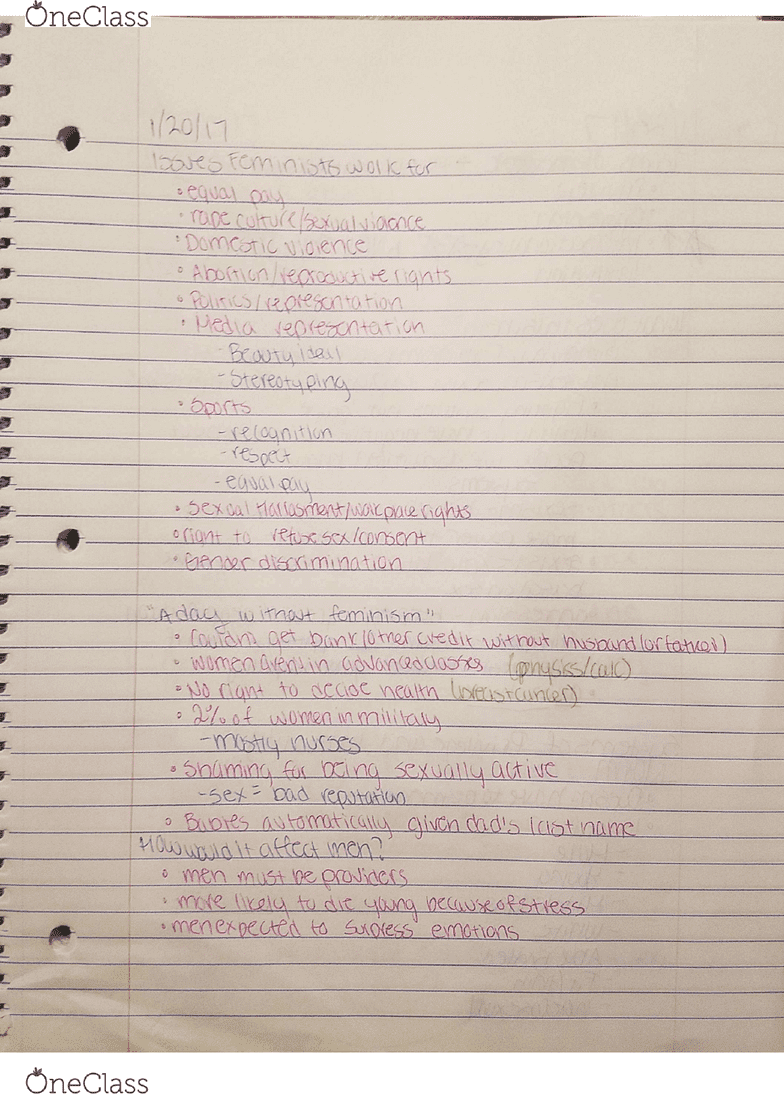 OneClass
1/20/17
Issues Feminists work for
• equal pay
• rape culture/sexual violence
• Domestic violence
• Abortion/reproductive rights
• Politics/representation
• Media representation
- Beauty ideal
- Stereotyping
• Sports
- recognition
- respect
- equal pay
• Sexual Harrasment/workplace rights
• right to refuse sex/consent
• Gender discrimination
"A day without feminism"
• Couldn't get bank/other credit without husband (or father)
• women aren't in advanced classes (physics/calc)
• No right to decide health (breast cancer)
• 2% of women in military
- mostly nurses
• Shaming for being sexually active
- sex = bad reputation
• Babies automatically given dad's last name
How would it affect men?
• men must be providers
• more likely to die young because of stress
• men expected to supress emotions
OneClass